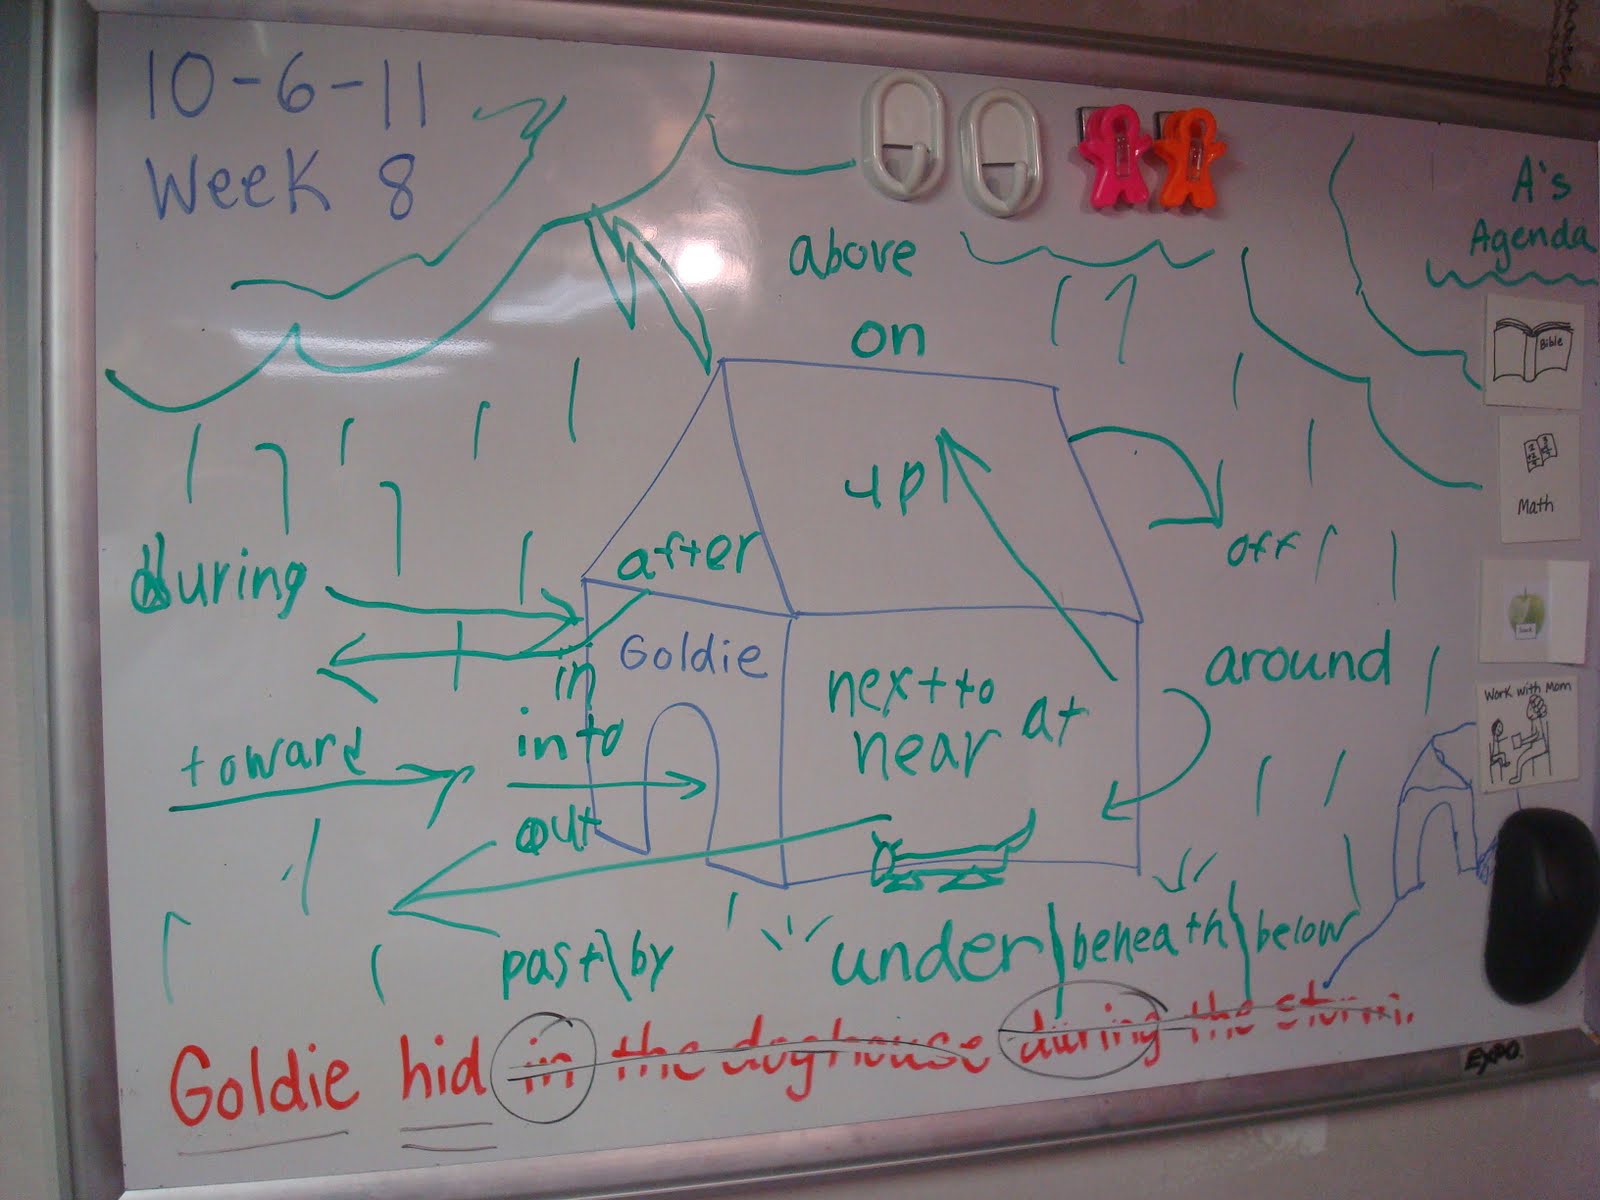 10-6-11
Week 8
A's
Agenda
above
on
Bible
up
Math
off
after
during
Goldie
in
around
next to
near at
Work with Mom
toward
into
out
past\by
under|beneath\below
Goldie hid in the doghouse during the storm.
EXPO